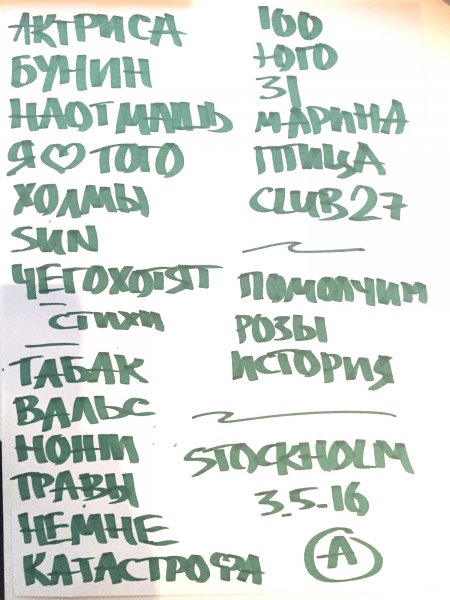 АКТРИСА
БУНИН
НАОТМАШЬ
Я ♡ ТОГО
ХОЛМЫ
SUN
ЧЕГО ХОТЯТ
СТИХИ
ТАБАК
ВАЛЬС
НОЖИ
ТРАВЫ
НЕ МНЕ
КАТАСТРОФА
100
ЮГО
31
МАРИНА
ПТИЦА
CLUB 27
ПОМОЛЧИМ
РОЗЫ
ИСТОРИЯ
STOCKHOLM
3.5.16
A